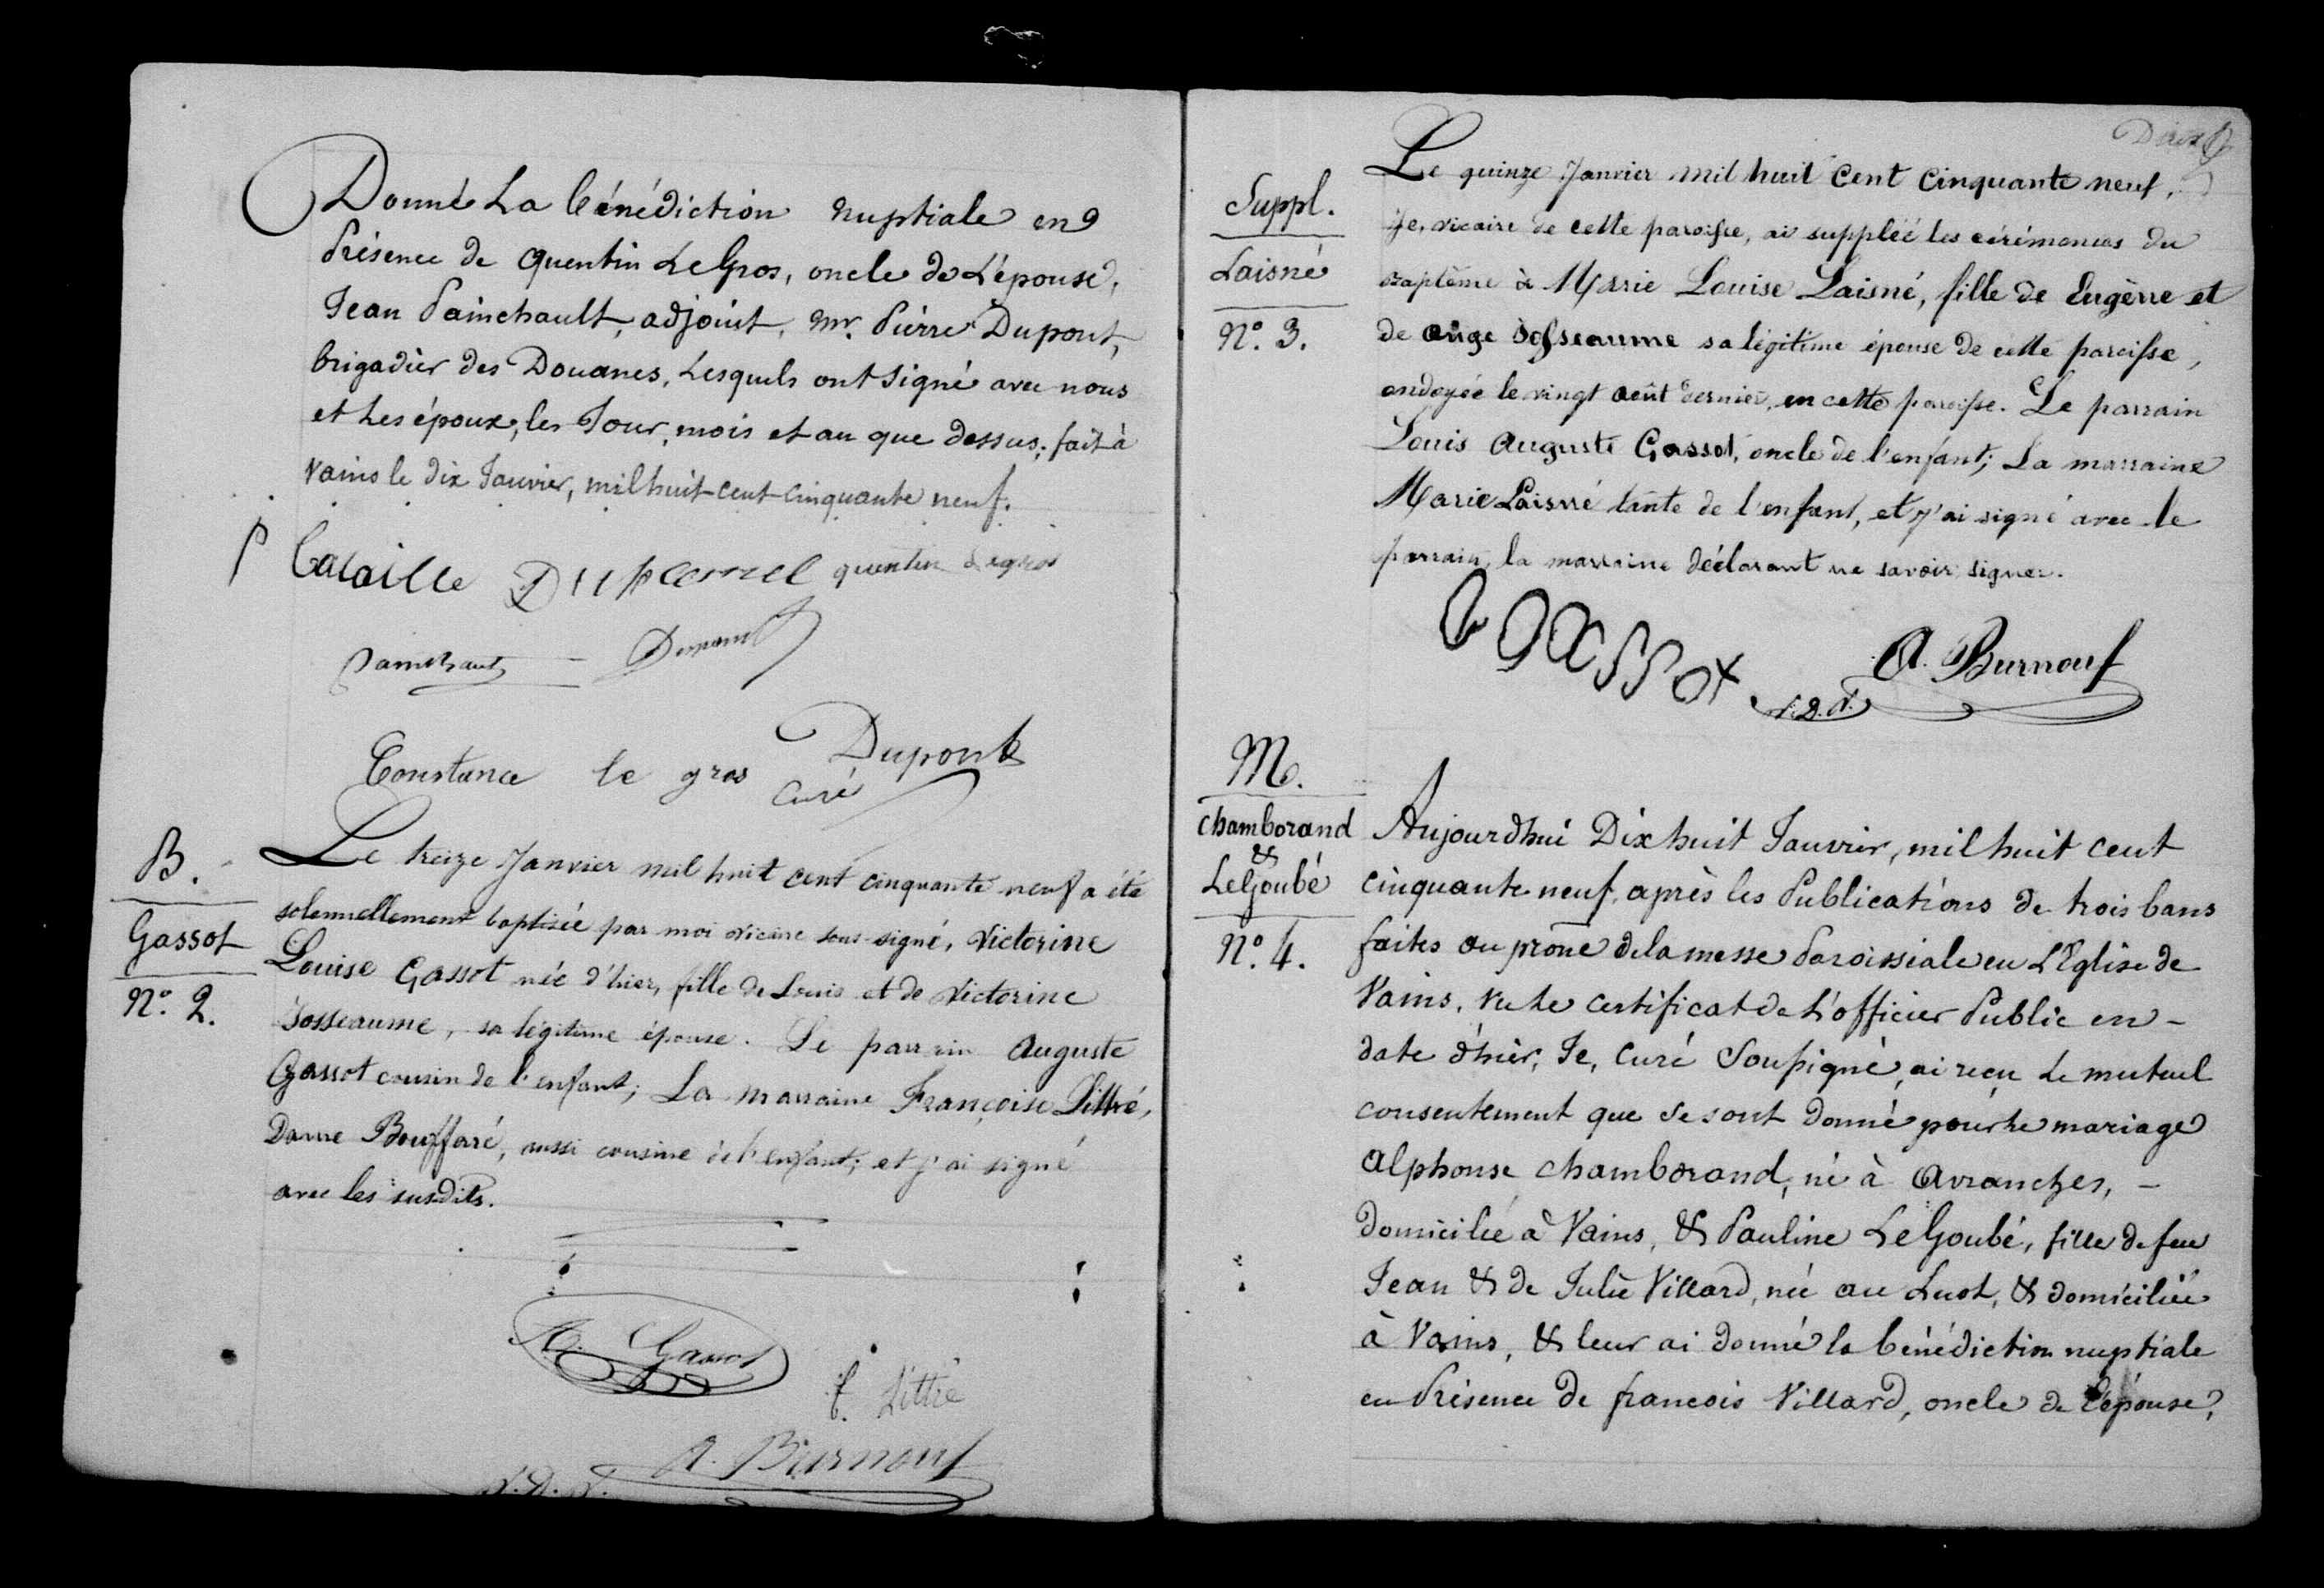 Donné La bénédiction nuptiale en
Présence de quentin LeGros, oncle de L'épouse,
Jean Painchault, adjoint, mr. Pierre Dupont,
brigadier des Douanes, Lesquels ont signé avec nous
et Les époux, les Jour, mois et an que dessus; fait à
Vains le dix Janvier, mil huit-cent-cinquante neuf.
P Bataille quentin Legros
Painchaut
Constance le gros Dupont
Curé
B.
Gassot
N°. 2.
Le treize Janvier mil huit cent cinquante neuf a été
solennellement baptisée par moi vicaire sous-signé, Victorine
Louise Gassot née d'hier, fille de Louis et de Victorine
Josseaume, sa légitime épouse. Le parrain Auguste
Gassot cousin de l'enfant; La marraine Françoise Littré,
Dame Bouffaré, aussi cousine de l'enfant; et j'ai signé
avec les susdits.
A. Gassot
f. Littré
A. Burnouf
v.D.V.
Suppl.
Laisné
N°. 3.
Le quinze Janvier mil huit cent cinquante neuf,
Je, vicaire de cette paroisse, ai suppléé les cérémonies du
baptême à Marie Louise Laisné, fille de Eugène et
de ange Josseaume sa légitime épouse de cette paroisse,
ondoyée le vingt août dernier, en cette paroisse. Le parrain
Louis Auguste Gassot, oncle de l'enfant; La marraine
Marie Laisné tante de l'enfant, et j'ai signé avec le
parrain, la marraine déclarant ne savoir signer.
L Gassot
A. Burnouf
v.D.V.
M.
Chamborand
&
LeGoubé
N°. 4.
Aujourdhui Dix huit Janvier, mil huit cent
cinquante neuf, après les Publications de trois bans
faites au prône de la messe Paroissiale en L'Eglise de
Vains, Vu Le certificat de L'officier Public en -
date d'hier, Je, Curé Soussigné, ai reçu Le mutuel
consentement que se sont donné pour Le mariage
Alphonse Chamborand, né à Avranches, -
domicilié à Vains, & Pauline LeGoubé, fille de feu
Jean & de Julie Villard, née au Luot, & domiciliée
à Vains, & leur ai donné la bénédiction nuptiale
en Présence de francois Villard, oncle de L'épouse,